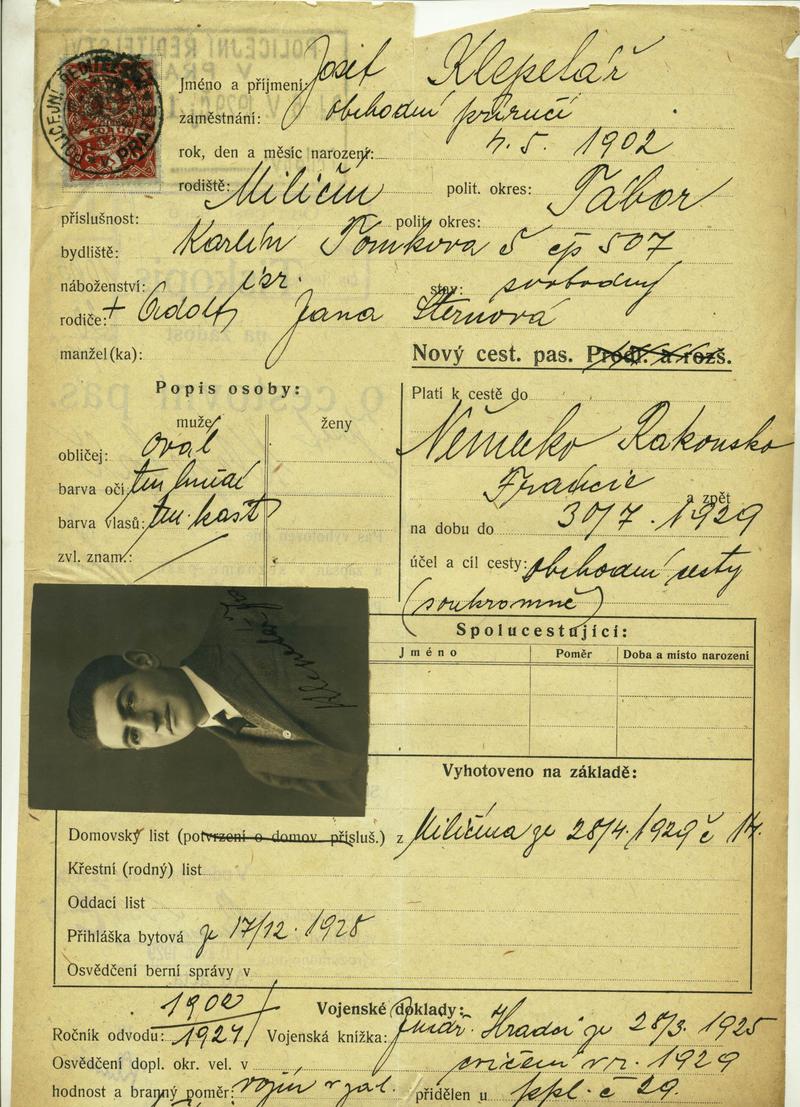 POLICEJNÍ ŘEDITELSTVÍ V PRAZE
Jméno a příjmení: Josef Klepetář
zaměstnání: obchodní příručí
rok, den a měsíc narození: 4. 5. 1902
rodiště: Miličín polit. okres: Tábor
příslušnost: polit okres:
bydliště: Karlín Tomkova 5 čp 507
náboženství: isr. stav: svobodný
rodiče: + Adolf, Jana Sternová
manžel(ka):
Nový cest. pas. Prodl. a rozš.
Popis osoby:
muže ženy
obličej: ovál
barva očí: tm hnědé
barva vlasů: tm. kašt
zvl. znam.:
Platí k cestě do
Německo Rakousko
Francie a zpět
na dobu do 30/7. 1929
účel a cíl cesty: obchodní cesty
(soukromně)
Spolucestující:
Jméno Poměr Doba a místo narození
Klepetář Jos
Vyhotoveno na základě:
Domovský list (potvrzení o domov. přísluš.) z Miličína ze 28/4. 1929 č 14.
Křestní (rodný) list
Oddací list
Přihláška bytová ze 17/12. 1928
Osvědčení berní správy v
Vojenské doklady:
1902
Ročník odvodu: 1924 Vojenská knížka: Jindř. Hradci ze 28/3. 1925
Osvědčení dopl. okr. vel. v cvičení v r. 1929
hodnost a branný poměr: vojín v zál. přidělen u ppl. č 29.